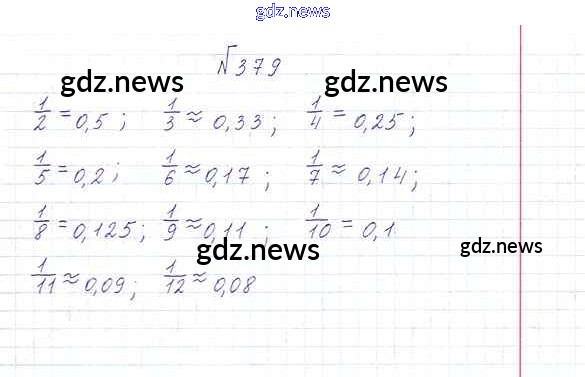 gdz.news
№379
gdz.news gdz.news
1/2 = 0,5 ; 1/3 ≈ 0,33 ; 1/4 = 0,25 ;
1/5 = 0,2 ; 1/6 ≈ 0,17 ; 1/7 ≈ 0,14 ;
1/8 = 0,125 ; 1/9 ≈ 0,11 ; 1/10 = 0,1
gdz.news gdz.news
1/11 ≈ 0,09 ; 1/12 ≈ 0,08
gdz.news gdz.news